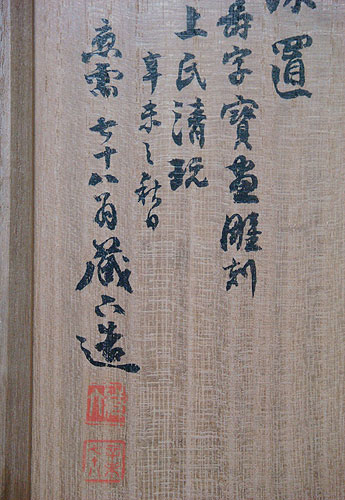 置
寿字寶畫雕刻
上氏清玩
辛未之秋日
七十八翁蔵六造